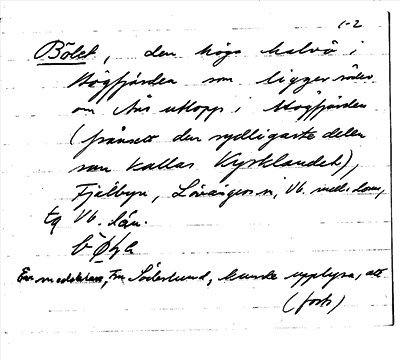 1-2
Bölet, den höga halvö i
Högfjärden som ligger söder
om Åns utlopp i Högfjärden
(frånsett den sydligaste delen
som kallas Kyrklandet),
Fjälbyn, Lövångers sn, Vb. med. dom,
Vb. län.
En meddelare, Fru Söderlund, kunde upplysa, att
(forts)